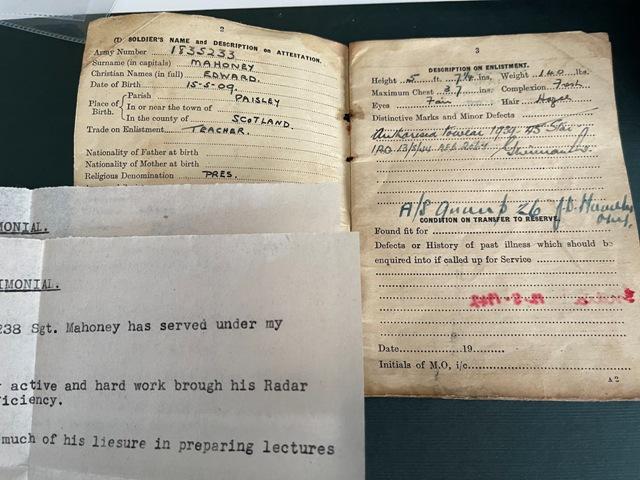 2
(I) SOLDIER'S NAME and DESCRIPTION on ATTESTATION.
Army Number 1835233
Surname (in capitals) MAHONEY
Christian Names (in full) EDWARD.
Date of Birth 15-5-09.
Place of Birth. Parish PAISLEY
In or near the town of
In the county of SCOTLAND.
Trade on Enlistment TEACHER.
Nationality of Father at birth
Nationality of Mother at birth
Religious Denomination PRES.
3
DESCRIPTION ON ENLISTMENT.
Height 5 ft. 7¼ ins. Weight 140 lbs.
Maximum Chest 37 ins. Complexion Fresh
Eyes Fair Hair
Distinctive Marks and Minor Defects
Authorised to wear 1939-45 Star
A/S Group 26
CONDITION ON TRANSFER TO RESERVE.
Found fit for
Defects or History of past illness which should be
enquired into if called up for Service
Date 19
Initials of M.O, i/c
A2
MONIAL.
IMONIAL.
238 Sgt. Mahoney has served under my
active and hard work brough his Radar
iciency.
much of his liesure in preparing lectures